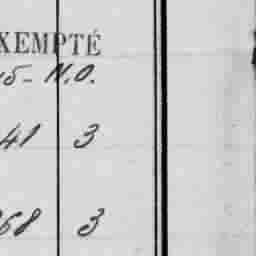 XEMPTÉ
15- N.O.
41 3
68 3